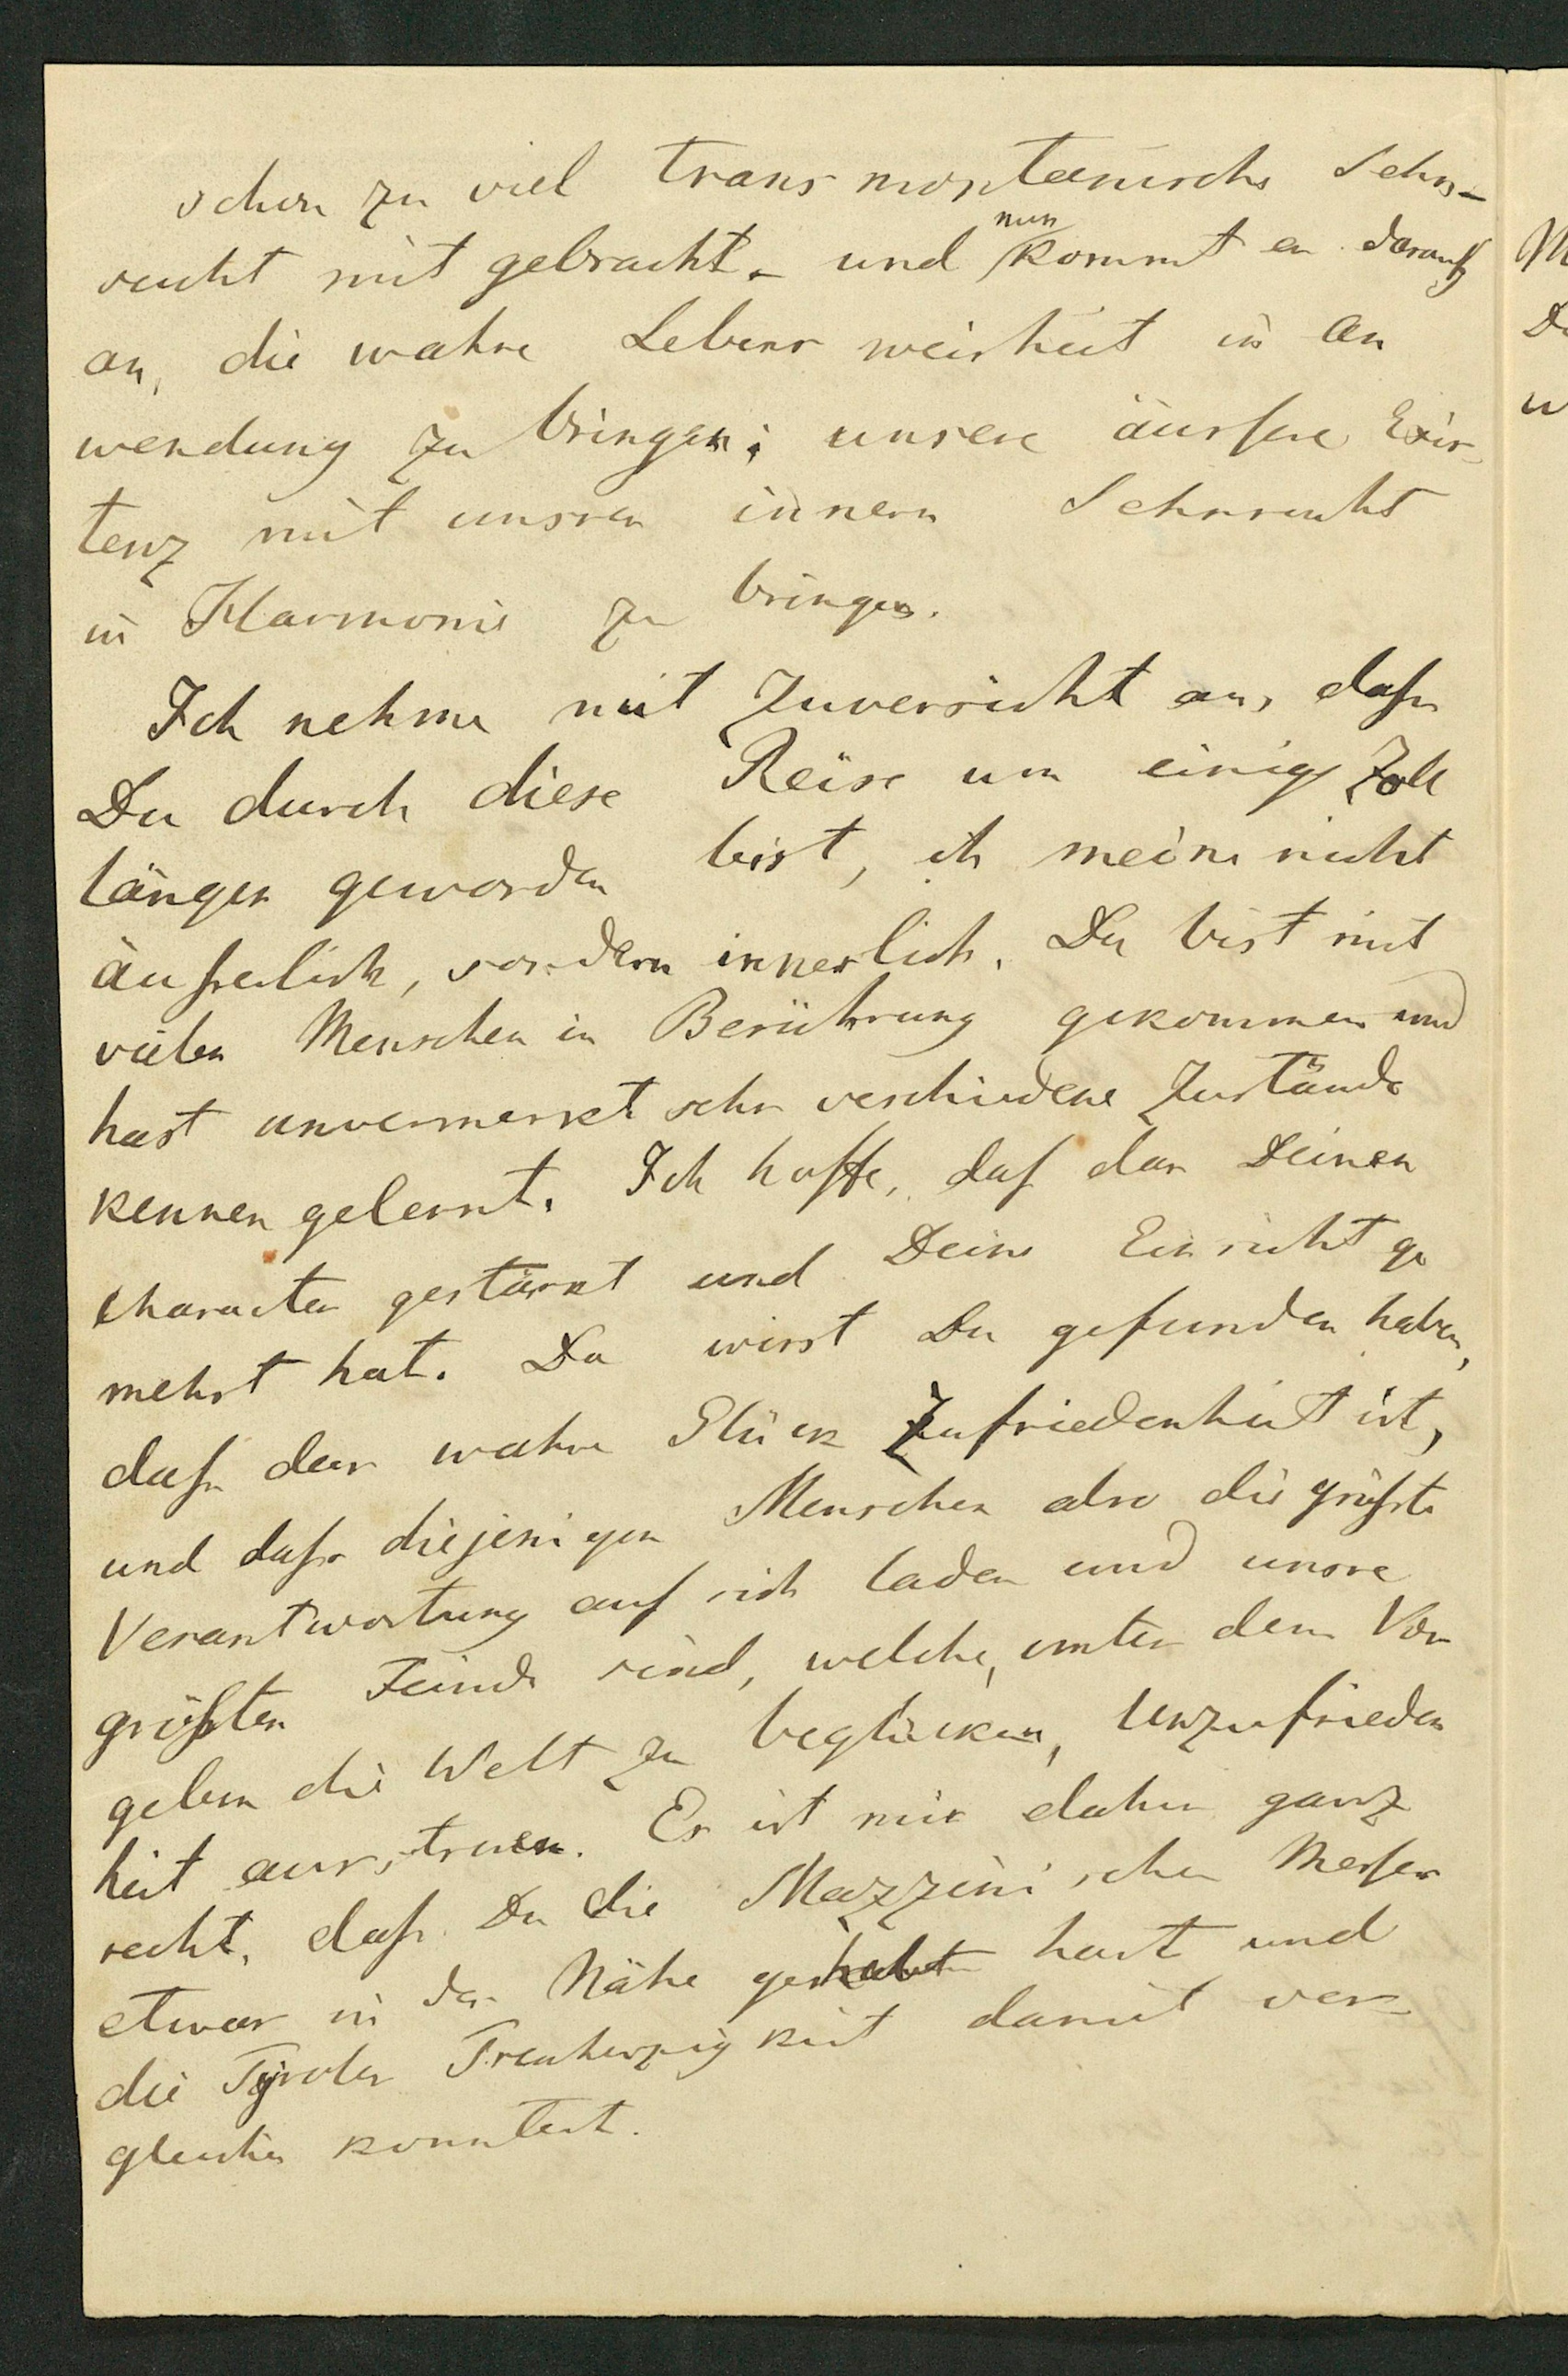 schon zu viel transmontanische Sehn-
sucht mit gebracht. – und nun kommt es darauf
an, die wahre Lebens weisheit in An
wendung zu bringen; unsere äussere Exis-
tenz mit unsrer innern Sehnsucht
in Harmonie zu bringen.
Ich nehme mit Zuversicht an, dass
Du durch diese Reise um einige Zoll
länger geworden bist, ich meine nicht
äusserlich, sondern innerlich. Du bist mit
vielen Menschen in Berührung gekommen und
hast unvermerkt sehr verschiedene Zustände
kennen gelernt. Ich hoffe, daß das Deinen
Character gestärkt und Deine Einsicht ge
mehrt hat. Da wirst Du gefunden haben,
dass das wahre Glück Zufriedenheit ist,
und dass diejenigen Menschen also die größte
Verantwortung auf sich laden und unsre
größten Feinde sind, welche, unter dem Vor
geben die Welt zu beglücken, Unzufrieden
heit ausstreuen. Es ist mir daher ganz
recht, dass Du die Mazzinischen Messer
etwas in der Nähe gehabt hast und
die Tyroler Treuherzigkeit damit ver-
gleichen konntest.
M
De
w